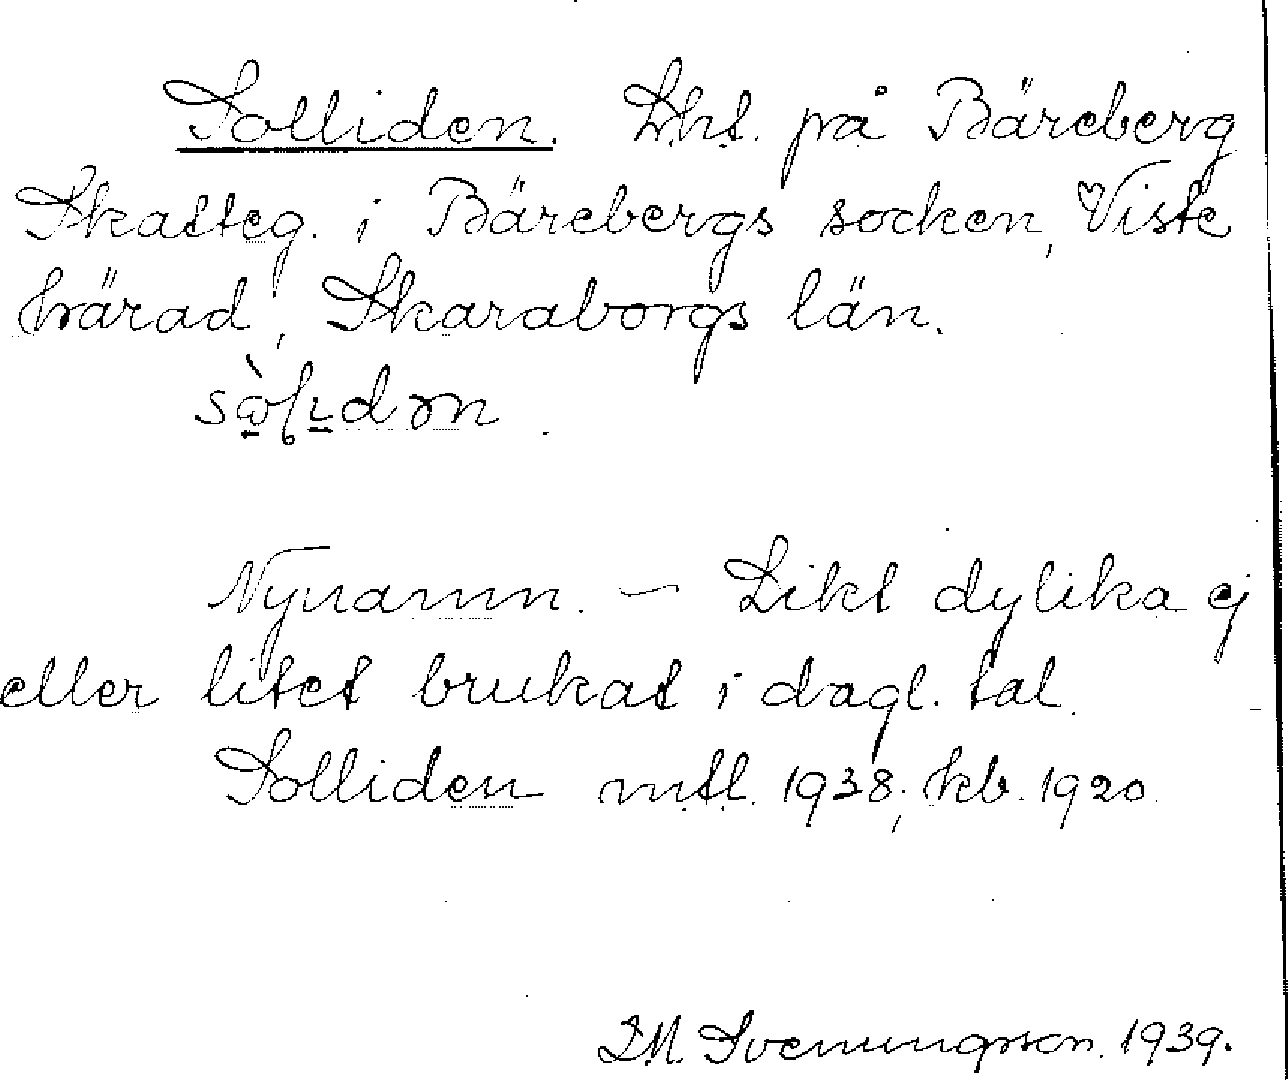 Solliden. Lht. på Bäreberg
Skatteg. i Bärebergs socken, Viste
härad, Skaraborgs län.
Nynamn. — Likt dylika ej
eller litet brukat i dagl. tal.
Solliden mtl. 1938; kb. 1920.
Svenungsson. 1939.